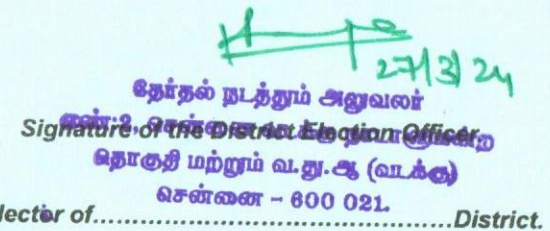 27/3/24
தேர்தல் நடத்தும் அலுவலர்
எண்:2, சென்னை வடக்கு நாடாளுமன்ற
Signature of the District Election Officer
தொகுதி மற்றும் வ.து.ஆ (வடக்கு)
சென்னை - 600 021.
lector of..............................................District.